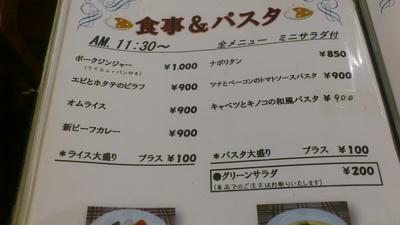 食事&パスタ
AM. 11:30～ 全メニュー ミニサラダ付
ポークジンジャー ¥1.000
(ライス又はパン付き)
エビとホタテのピラフ ¥900
オムライス ¥900
新ビーフカレー ¥900
*ライス大盛り プラス ¥100
ナポリタン ¥850
ツナとベーコンのトマトソースパスタ ¥900
キャベツとキノコの和風パスタ ¥900
*パスタ大盛り プラス ¥100
●グリーンサラダ ¥200
(単品でのご注文はお断りいたします)